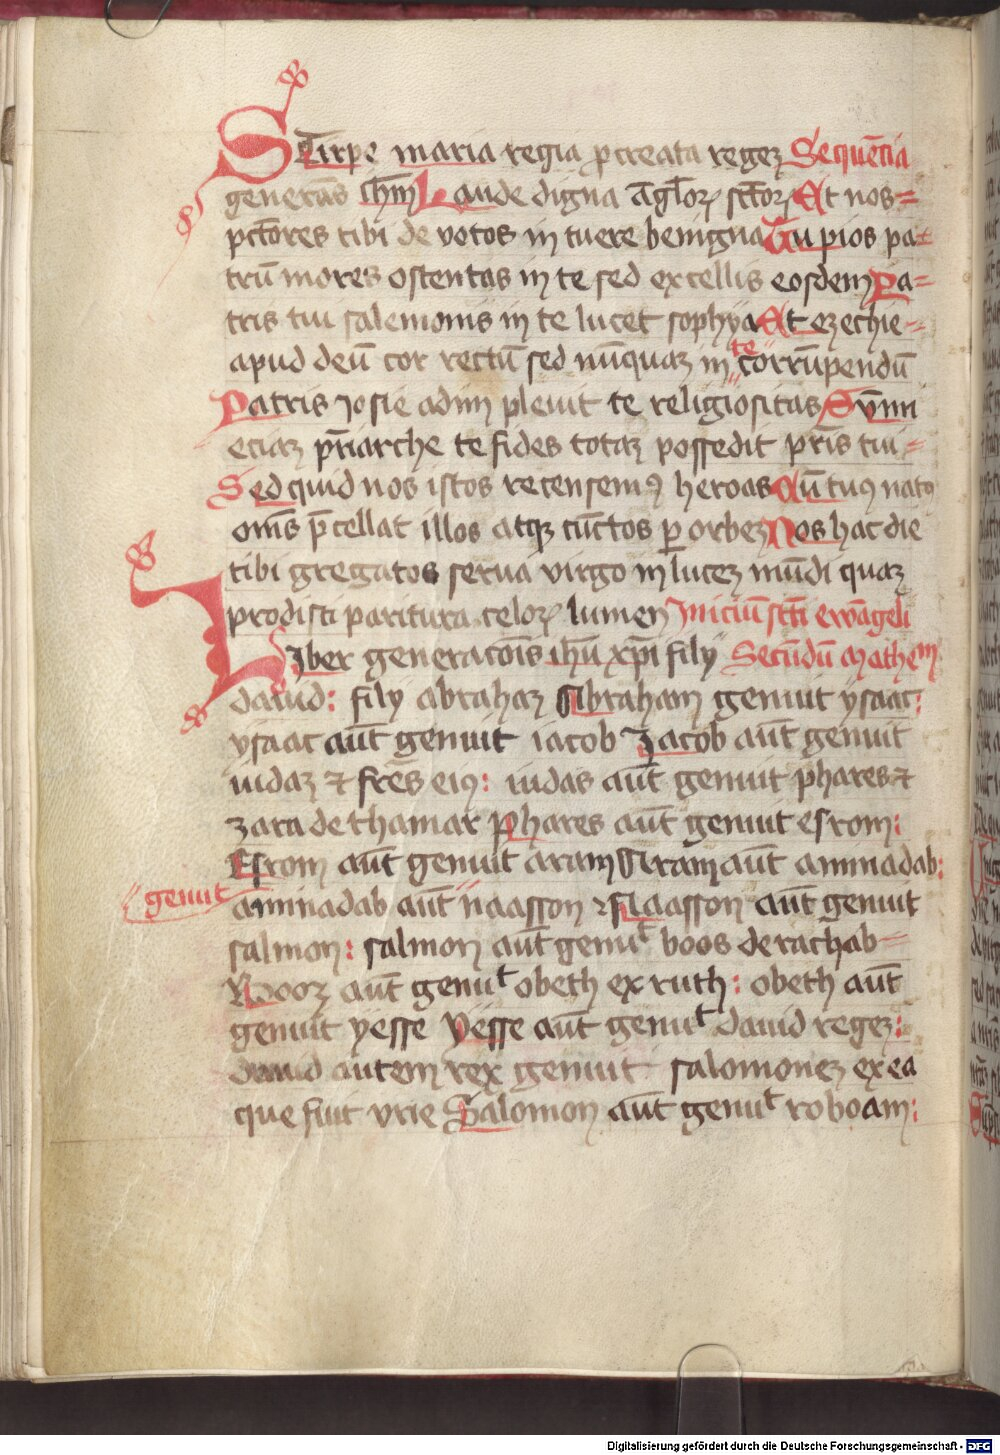 Stirpe maria regia p̄creata regeʒ Sequēcia
generās ih̄m Laude digna āgl̄oꝝ sct̄oꝝ Et nos=
pct̄ores tibi de votos in tuere benigna Tu pios pa=
trū mores ostentas in te sed excellis eosdem Pa=
tris tui salemonis in te lucet sophya Et ezechie=
apud deū cor rectū sed nūquaʒ in te corrūpendū
Patris Josie adim pleuit te religiositas Sūmi
eciaʒ pr̄iarche te fides totaʒ possedit pr̄is tui=
Sed quid nos istos recensemꝰ heroas Cū tuꝰ natꝰ
om̄s p̄cellat illos atqʒ cūctos per orbeʒ Nos hac die
tibi gregatos serua virgo in luceʒ mūdi quaʒ
prodisti paritura celoꝝ lumen Iniciū sct̄i ewāgeli
Liber generacōis ih̄u xp̄i fily Secūdū Mathem
dauid: fily abrahaʒ Abraham genuit ysaac:
ysaac aut̄ genuit iacob Jacob aut̄ genuit
iudaʒ ⁊ fr̄es eiꝰ: iudas aut̄ genuit phares ⁊
zara de thamar Phares aut̄ genuit esrom:
Esrom aut̄ genuit aram Aram aut̄ aminadab:
genuit
aminadab aut̄ naasson ⁊ Naasson aut̄ genuit
salmon: salmon aut̄ genuit boos de rachab=
Booʒ aut̄ genuit obeth ex ruth: obeth aut̄
genuit yesse Yesse aut̄ genuit dauid regeʒ:
dauid autem rex genuit salomoneʒ ex ea
que fuit vrie Salomon aut̄ genuit roboam:
Digitalisierung gefördert durch die Deutsche Forschungsgemeinschaft - DFG